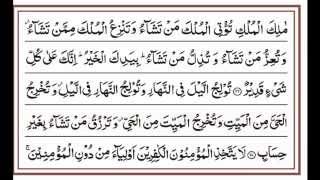 مٰلِكَ الْمُلْكِ تُؤْتِی الْمُلْكَ مَنْ تَشَآءُ وَتَنْزِعُ الْمُلْكَ مِمَّنْ تَشَآءُ
وَتُعِزُّ مَنْ تَشَآءُ وَتُذِلُّ مَنْ تَشَآءُ بِیَدِكَ الْخَیْرُ اِنَّكَ عَلٰی كُلِّ
شَیْءٍ قَدِیْرٌ تُوْلِجُ الَّیْلَ فِی النَّهَارِ وَتُوْلِجُ النَّهَارَ فِی الَّیْلِ وَتُخْرِجُ
الْحَیَّ مِنَ الْمَیِّتِ وَتُخْرِجُ الْمَیِّتَ مِنَ الْحَیِّ وَتَرْزُقُ مَنْ تَشَآءُ بِغَیْرِ
حِسَابٍ لَا یَتَّخِذِ الْمُؤْمِنُوْنَ الْكٰفِرِیْنَ اَوْلِیَآءَ مِنْ دُوْنِ الْمُؤْمِنِیْنَ